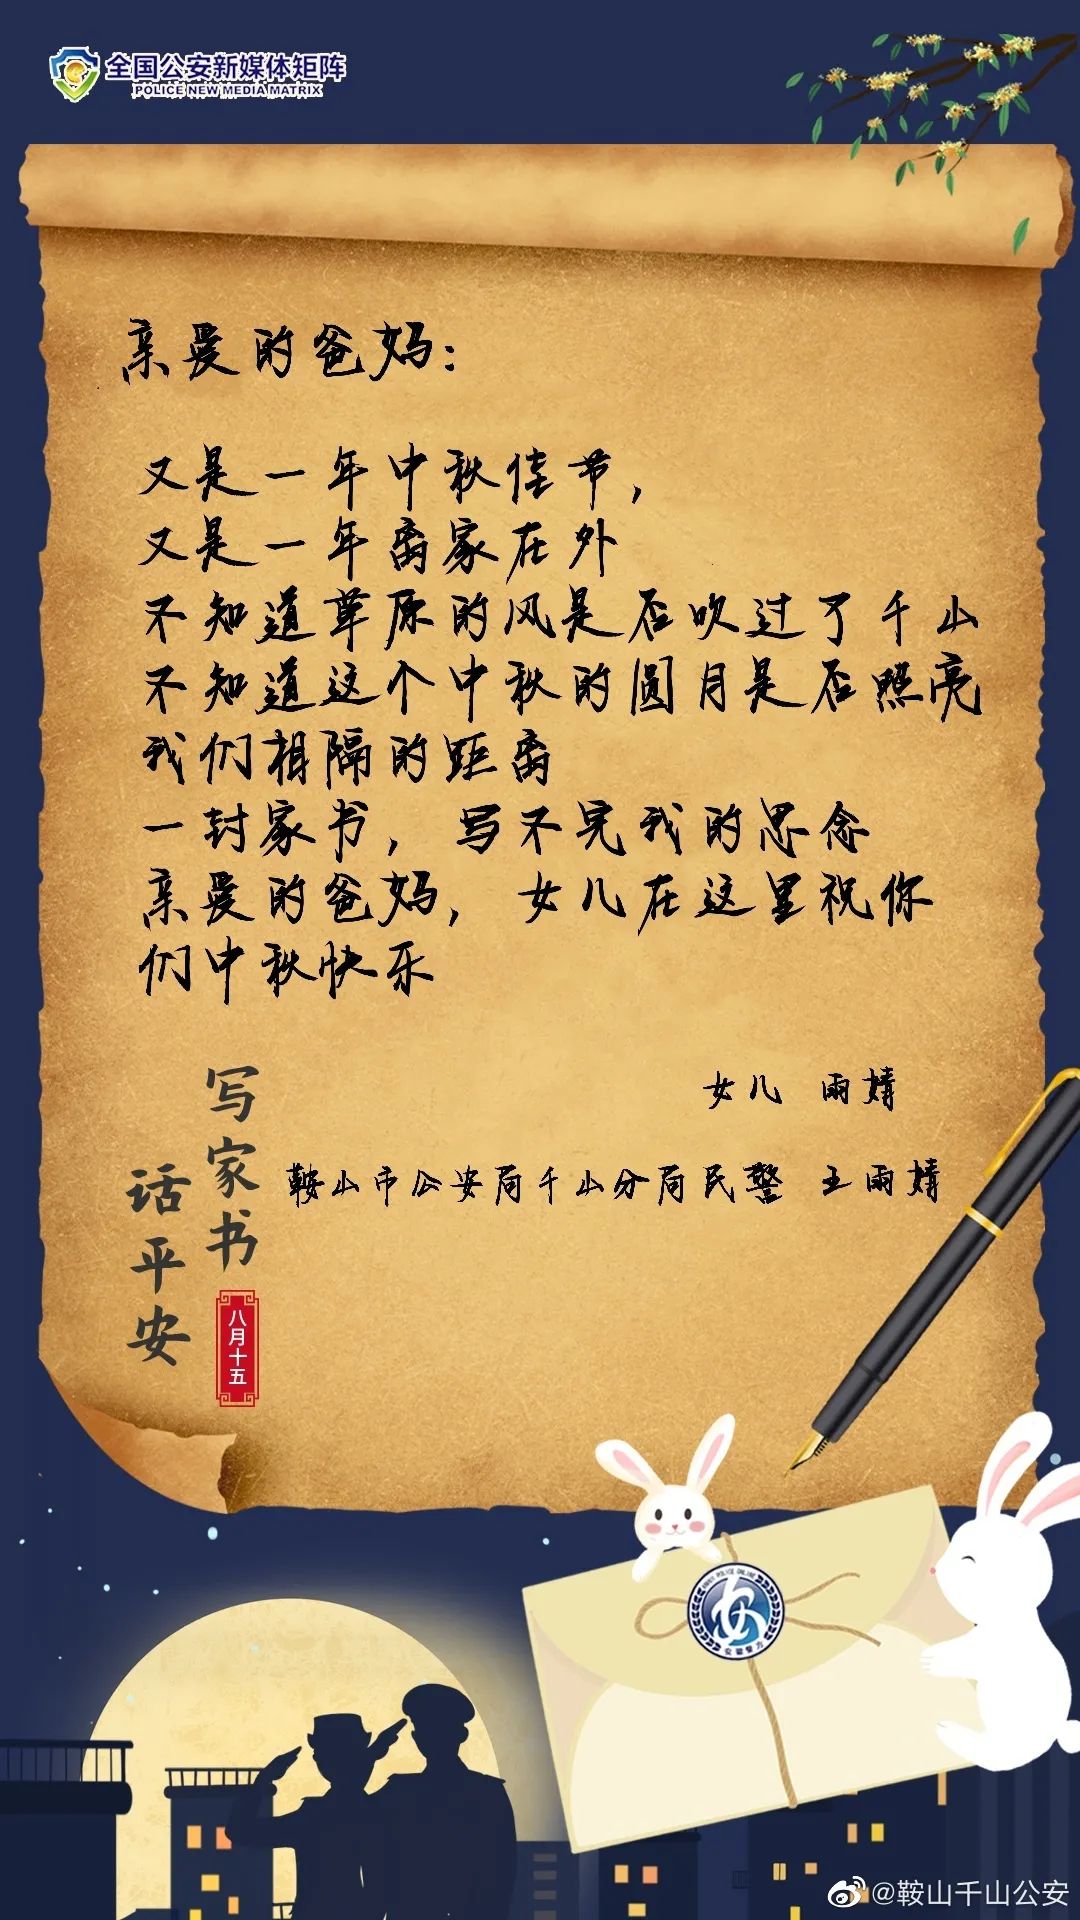 全国公安新媒体矩阵
POLICE NEW MEDIA MATRIX
亲爱的爸妈：
又是一年中秋佳节，
又是一年离家在外
不知道草原的风是否吹过了千山
不知道这个中秋的圆月是否照亮
我们相隔的距离
一封家书，写不完我的思念
亲爱的爸妈，女儿在这里祝你
们中秋快乐
女儿 雨婧
鞍山市公安局千山分局民警 王雨婧
写家书
话平安
八月十五
POLICE ONLINE
安徽警方
@鞍山千山公安